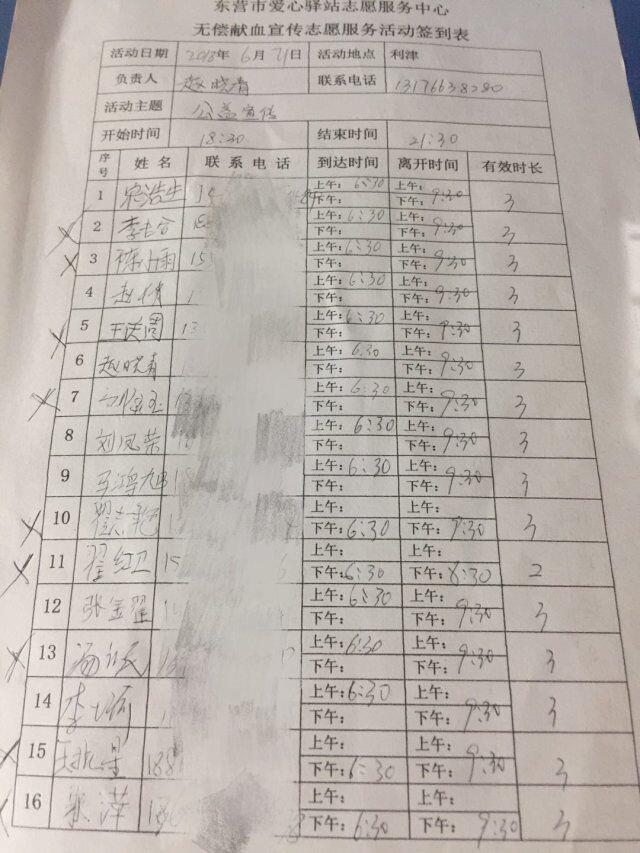 东营市爱心驿站志愿服务中心
无偿献血宣传志愿服务活动签到表
活动日期 2018年6月21日 活动地点 利津
负责人 赵晓青 联系电话 13176638280
活动主题 公益宣传
开始时间 18:30 结束时间 21:30
序号 姓名 联系电话 到达时间 离开时间 有效时长
1 上午: 6:30 上午: 3
下午: 下午: 9:30
2 上午: 6:30 上午: 3
下午: 下午: 9:30
3 上午: 6:30 上午: 3
下午: 下午: 9:30
4 赵倩 上午: 6:30 上午: 3
下午: 下午: 9:30
5 上午: 6:30 上午: 3
下午: 下午: 9:30
6 赵晓青 上午: 6:30 上午: 3
下午: 下午: 9:30
7 上午: 6:30 上午: 3
下午: 下午: 9:30
8 刘凤荣 上午: 6:30 上午: 3
下午: 下午: 9:30
9 马鸿旭 上午: 6:30 上午: 3
下午: 下午: 9:30
10 上午: 上午: 3
下午: 6:30 下午: 9:30
11 翟红卫 15 上午: 上午: 2
下午: 6:30 下午: 8:30
12 张金翠 上午: 6:30 上午: 3
下午: 下午: 9:30
13 上午: 6:30 上午: 3
下午: 下午: 9:30
14 上午: 6:30 上午: 3
下午: 下午: 9:30
15 188 上午: 上午: 3
下午: 6:30 下午: 9:30
16 张萍 上午: 上午: 3
下午: 6:30 下午: 9:30